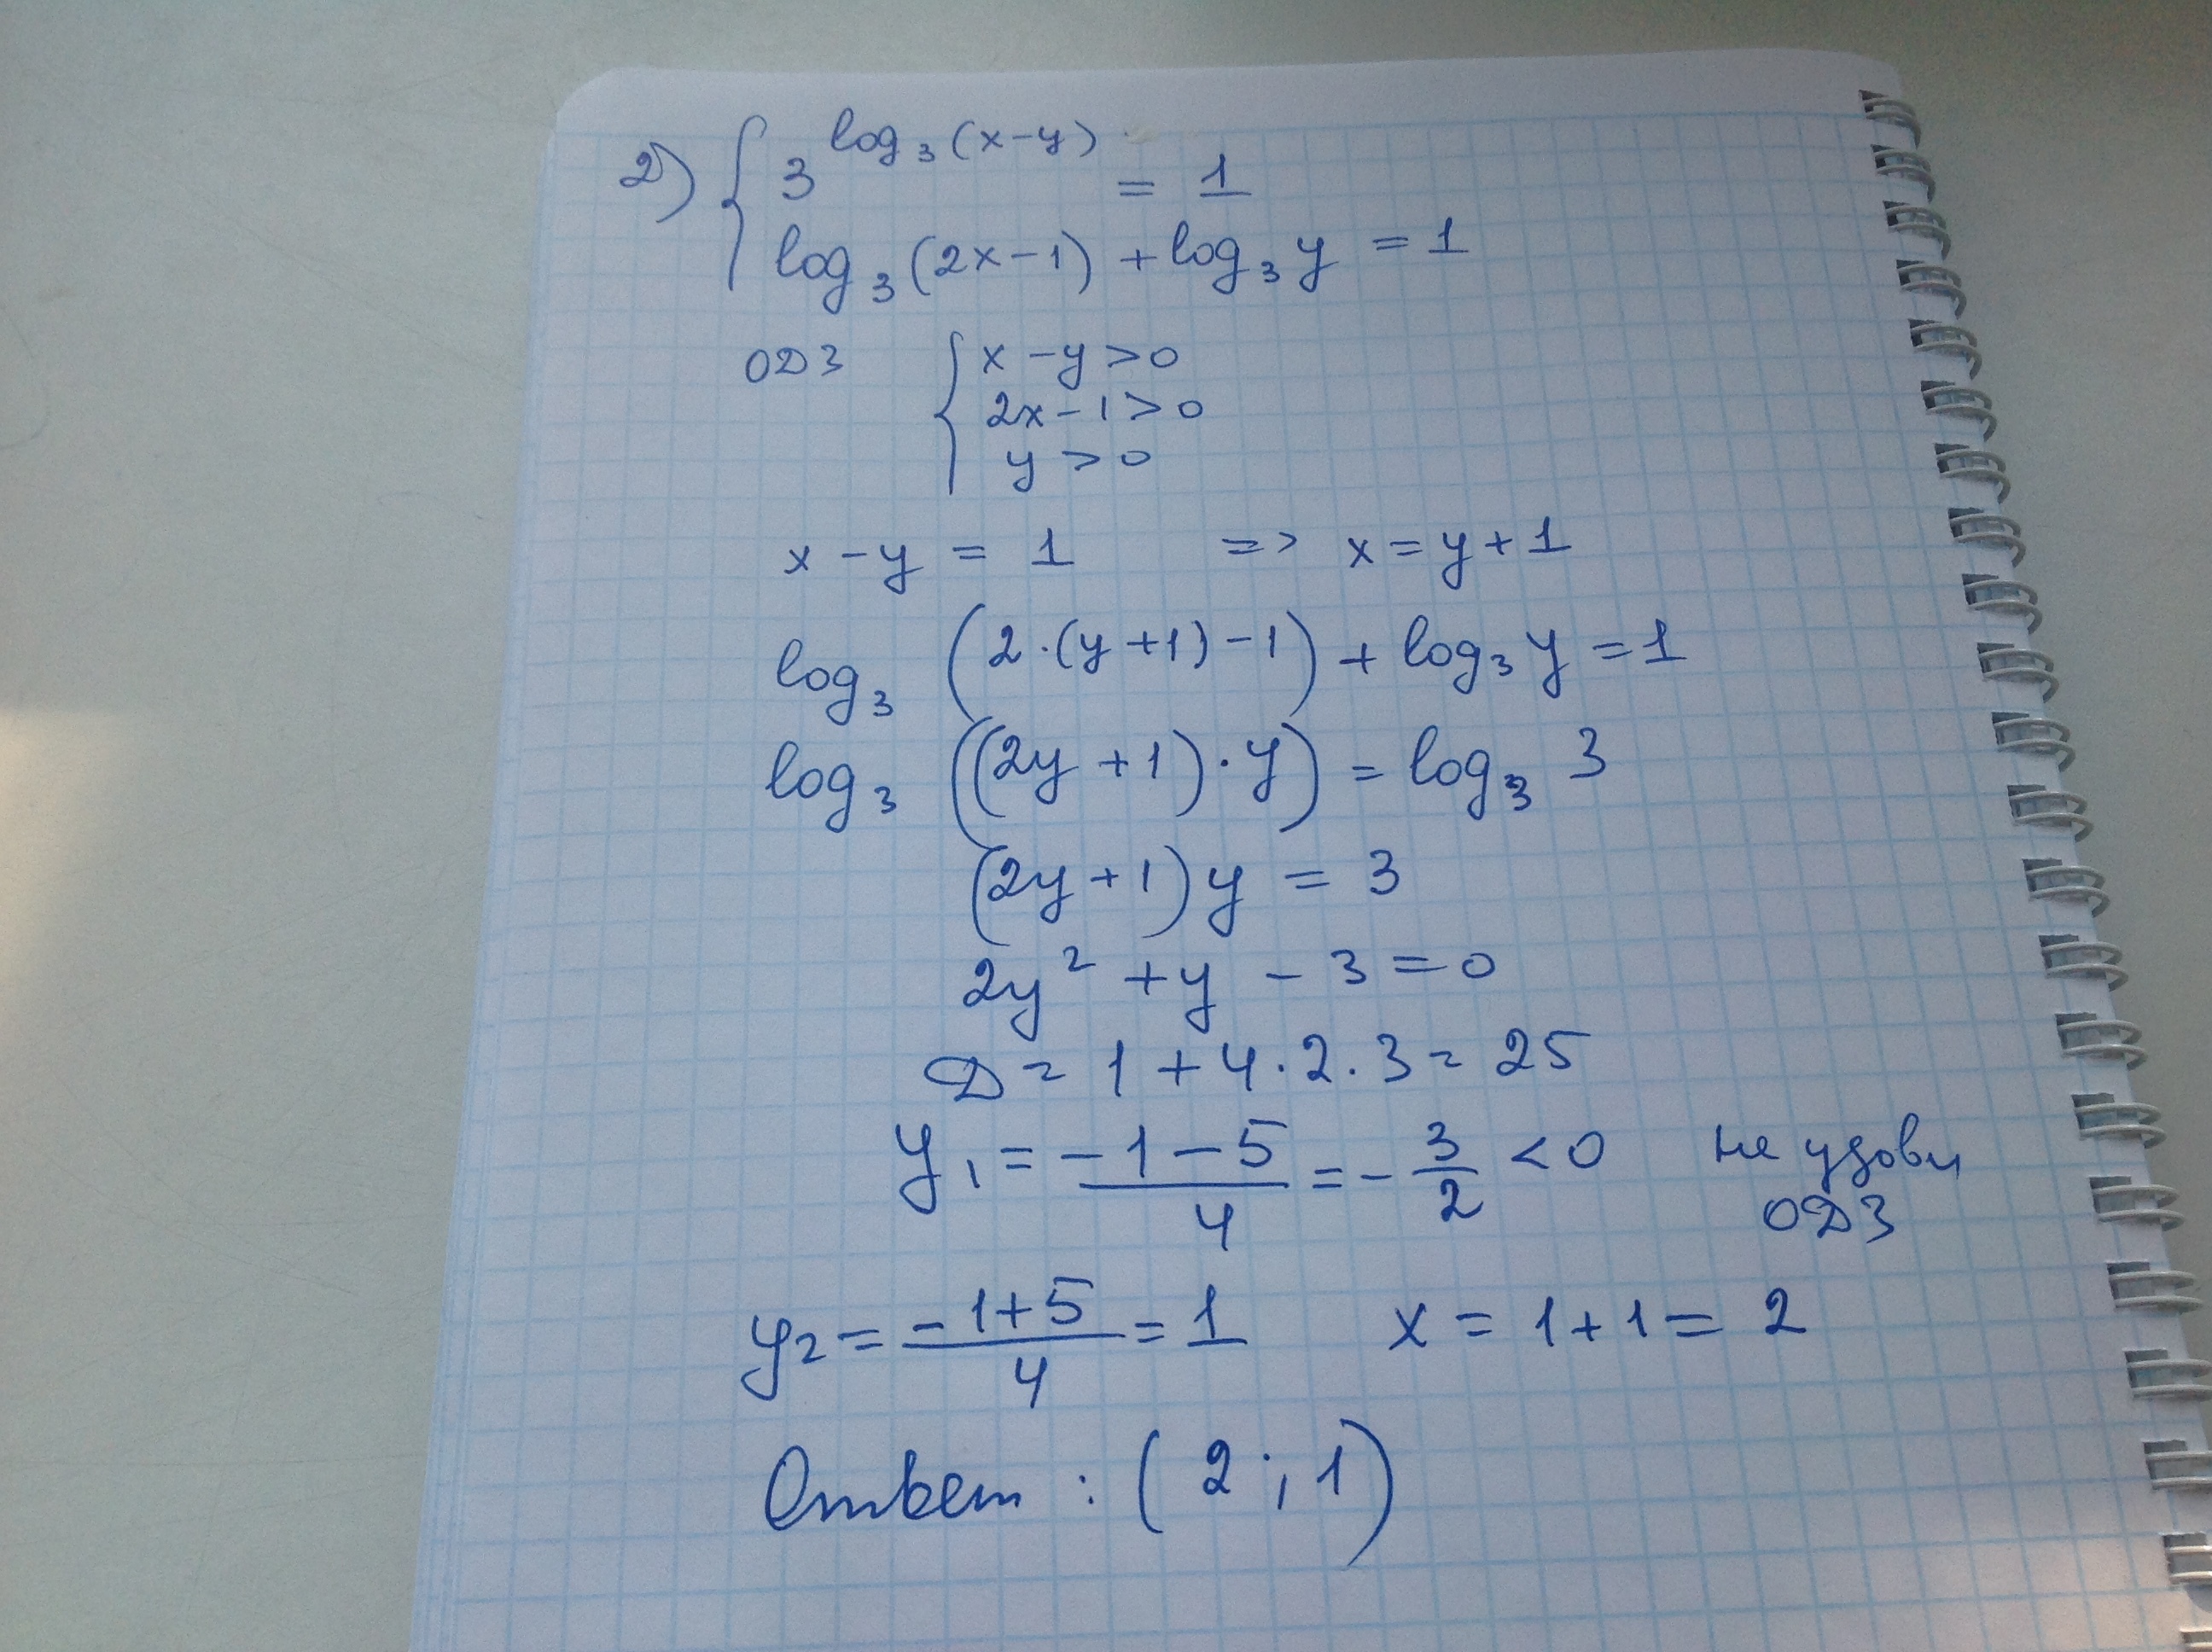 2) { 3^log₃(x-y) = 1
log₃(2x-1) + log₃y = 1
ОДЗ { x-y>0
2x-1>0
y>0
x-y = 1 => x=y+1
log₃ (2·(y+1)-1) + log₃y = 1
log₃ ((2y+1)·y) = log₃ 3
(2y+1)y = 3
2y² + y - 3 = 0
D = 1 + 4·2·3 = 25
y₁ = (-1-5)/4 = -3/2 < 0 не удовл
ОДЗ
y₂ = (-1+5)/4 = 1 x = 1+1 = 2
Ответ : (2;1)